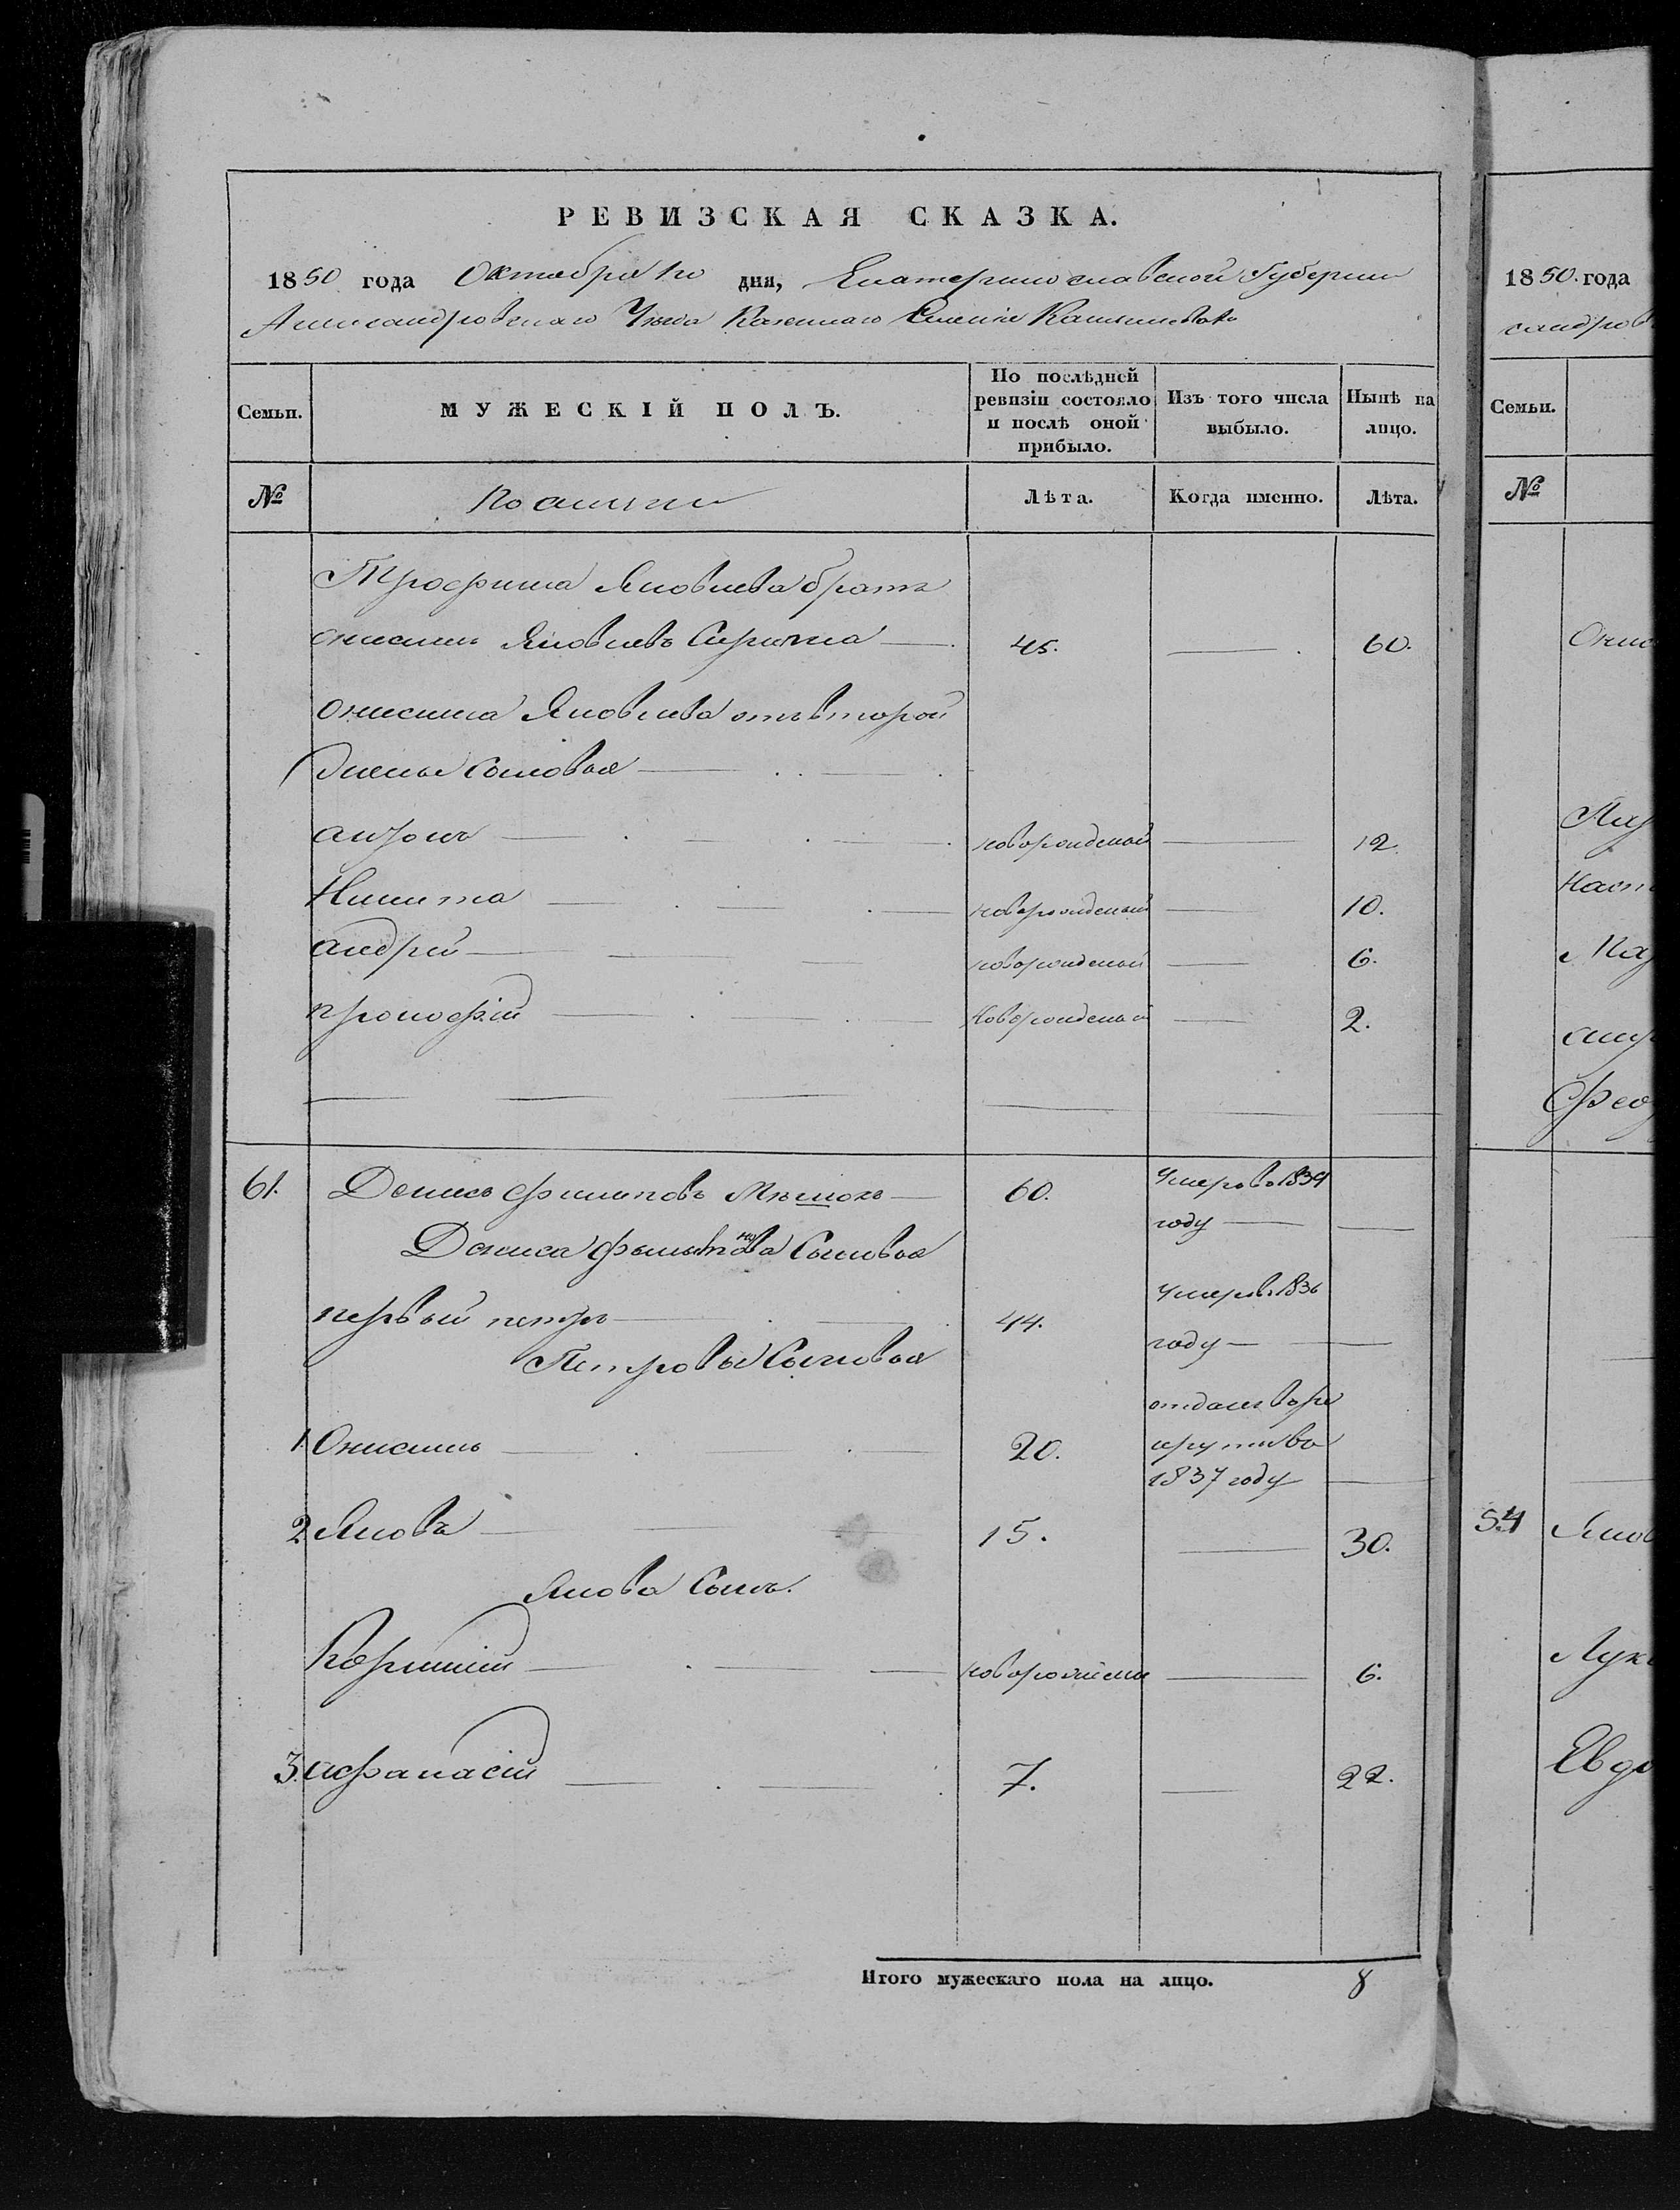 РЕВИЗСКАЯ СКАЗКА.
1850 года Октября дня, Екатеринославской Губернии
Александровскаго Уезда Казеннаго Селенія
Семьи.
МУЖЕСКІЙ ПОЛЪ.
По послѣдней ревизіи состояло и послѣ оной прибыло.
Изъ того числа выбыло.
Нынѣ на лицо.
№
Лѣта.
Когда именно.
Лѣта.
Трофима Яковлева братъ
Онисимъ Яковлевъ 45. 60.
Онисима Яковлева отъ второй
жены Сыновья
антонъ новорожденый 12
Никита новорожденый 10.
андрей новорожденый 6.
прокофій Новорожденый 2.
61. Денисъ Филиповъ Мѣшокъ 60. Умеръ въ 1834
году
Дениса Сыновья
первый петръ 44. Умеръ в 1836
году
Петровы Сыновья
1. Онисимъ 20. отданъ въ ре
круты въ
1837 году
2. Яковъ 15. 30.
Якова Сынъ.
Корнилій 6.
3. афанасій 7. 22.
Итого мужескаго пола на лицо. 8
1850. года
Семьи.
№
54